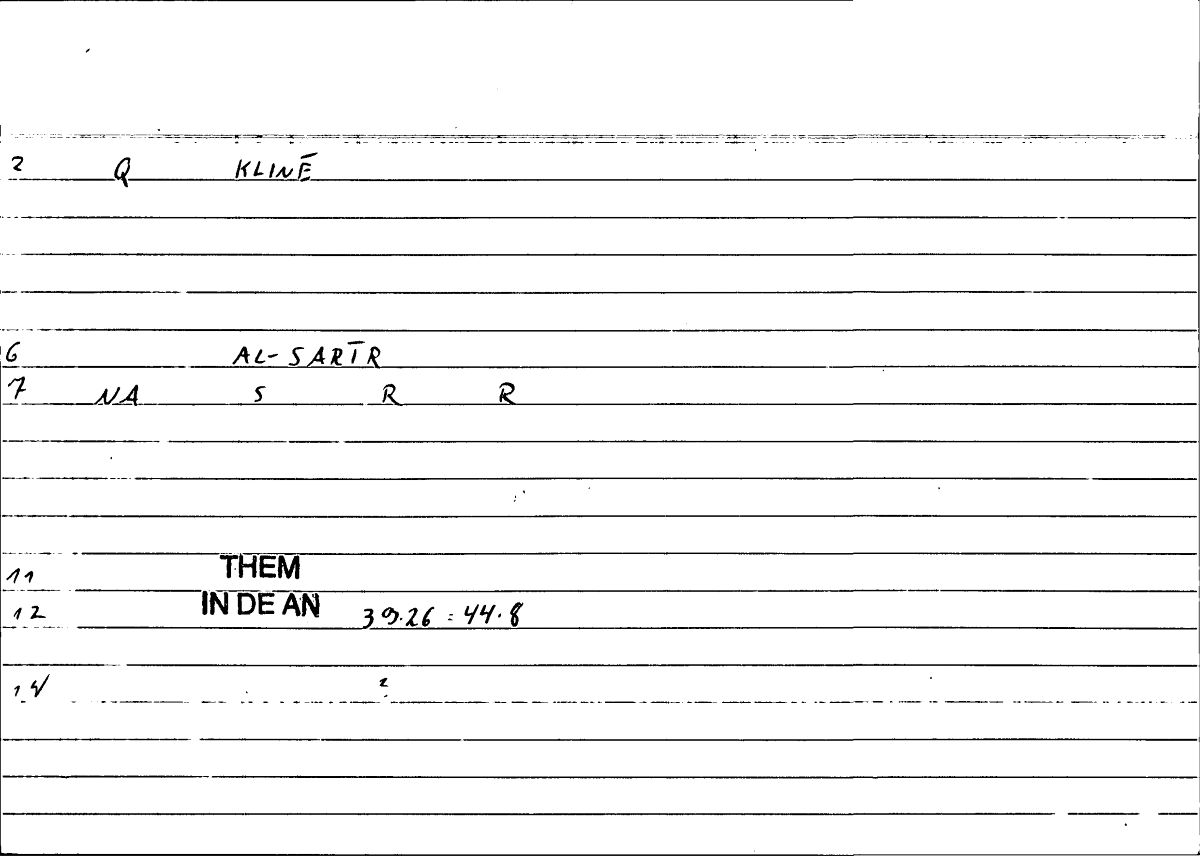 2 Q KLINE
6 AL-SARTR
7 NA S R R
11 THEM
12 IN DE AN 39.26 = 44.8
14 2